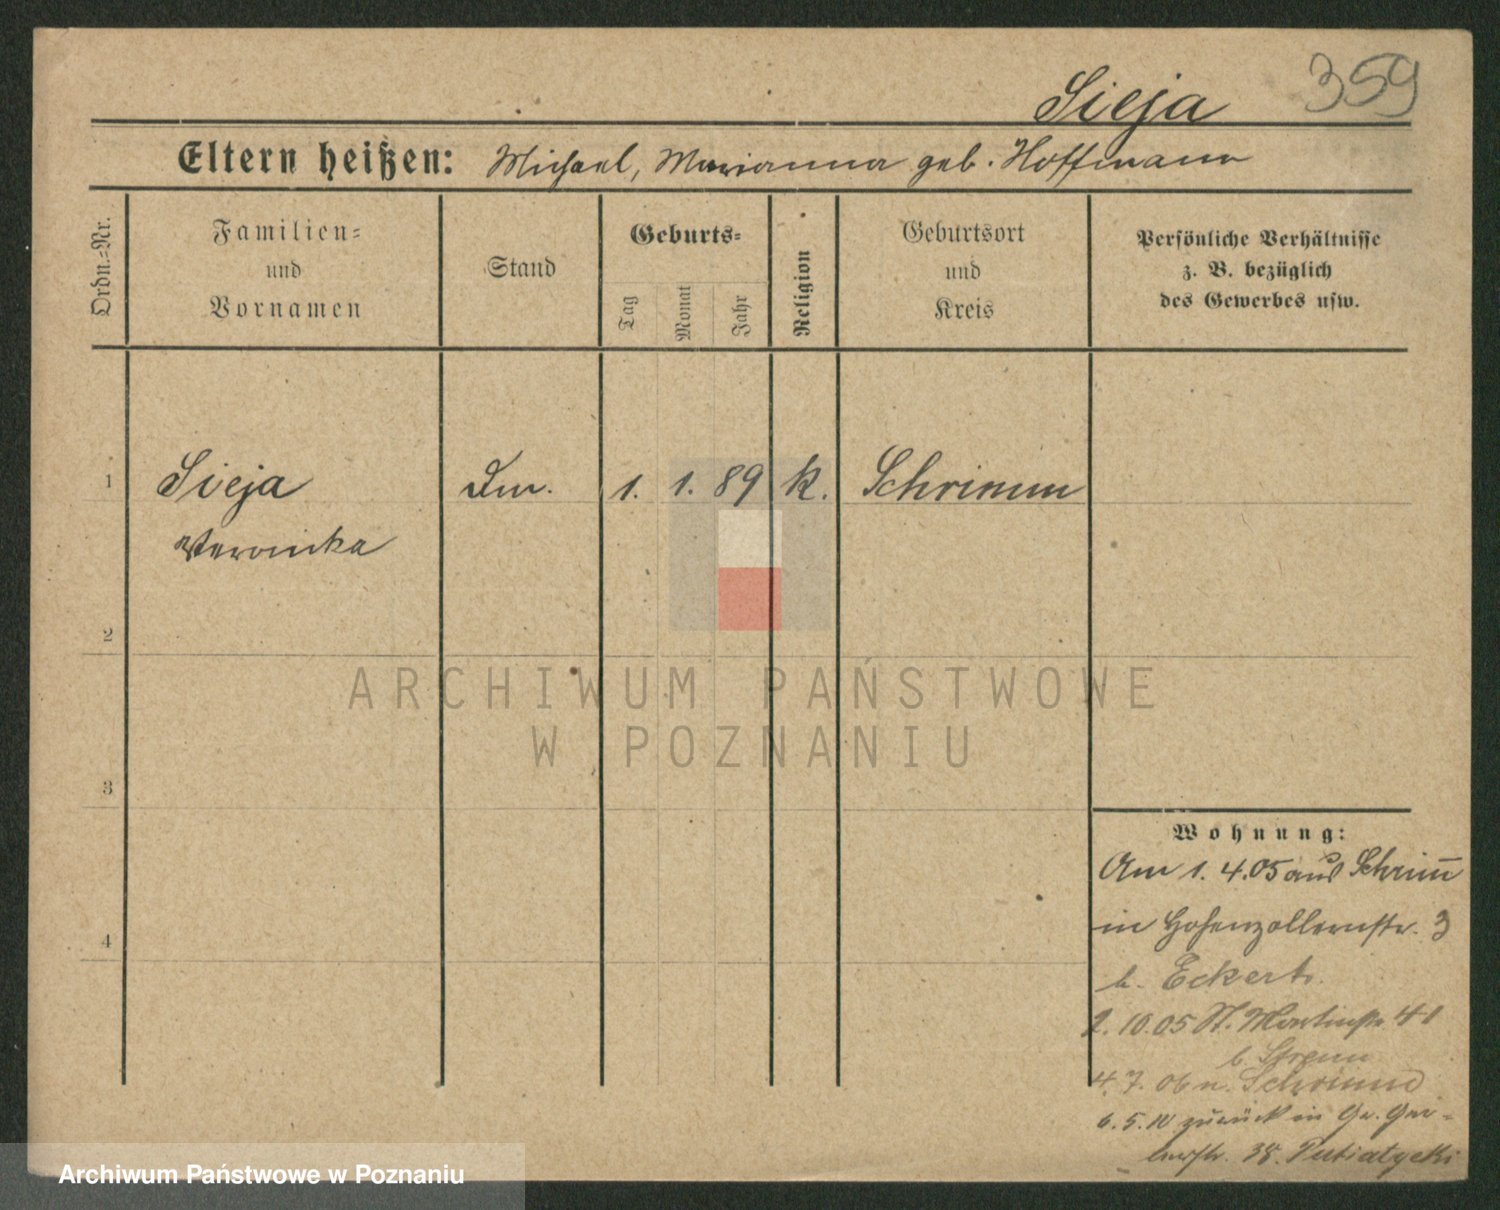 Sieja 359
Eltern heißen: Michael, Marianna geb. Hoffmann
Ordn.=Nr.
Familien=
und
Vornamen
Stand
Geburts=
Tag
Monat
Jahr
Religion
Geburtsort
und
Kreis
Persönliche Verhältnisse
z. B. bezüglich
des Gewerbes usw.
1 Sieja 1. 1. 89 k. Schrimm
Veronika
2
3
4
Wohnung:
Am 1. 4.05 aus Schrim̅
in Hohenzollernstr. 3
b. Eckert
2. 10.05 St. Martinstr 41
b.
4. 7. 06 n. Schrimm
6. 5. 10 zurück in Gr. Ger=
berstr. 38.
ARCHIWUM PAŃSTWOWE
W POZNANIU
Archiwum Państwowe w Poznaniu